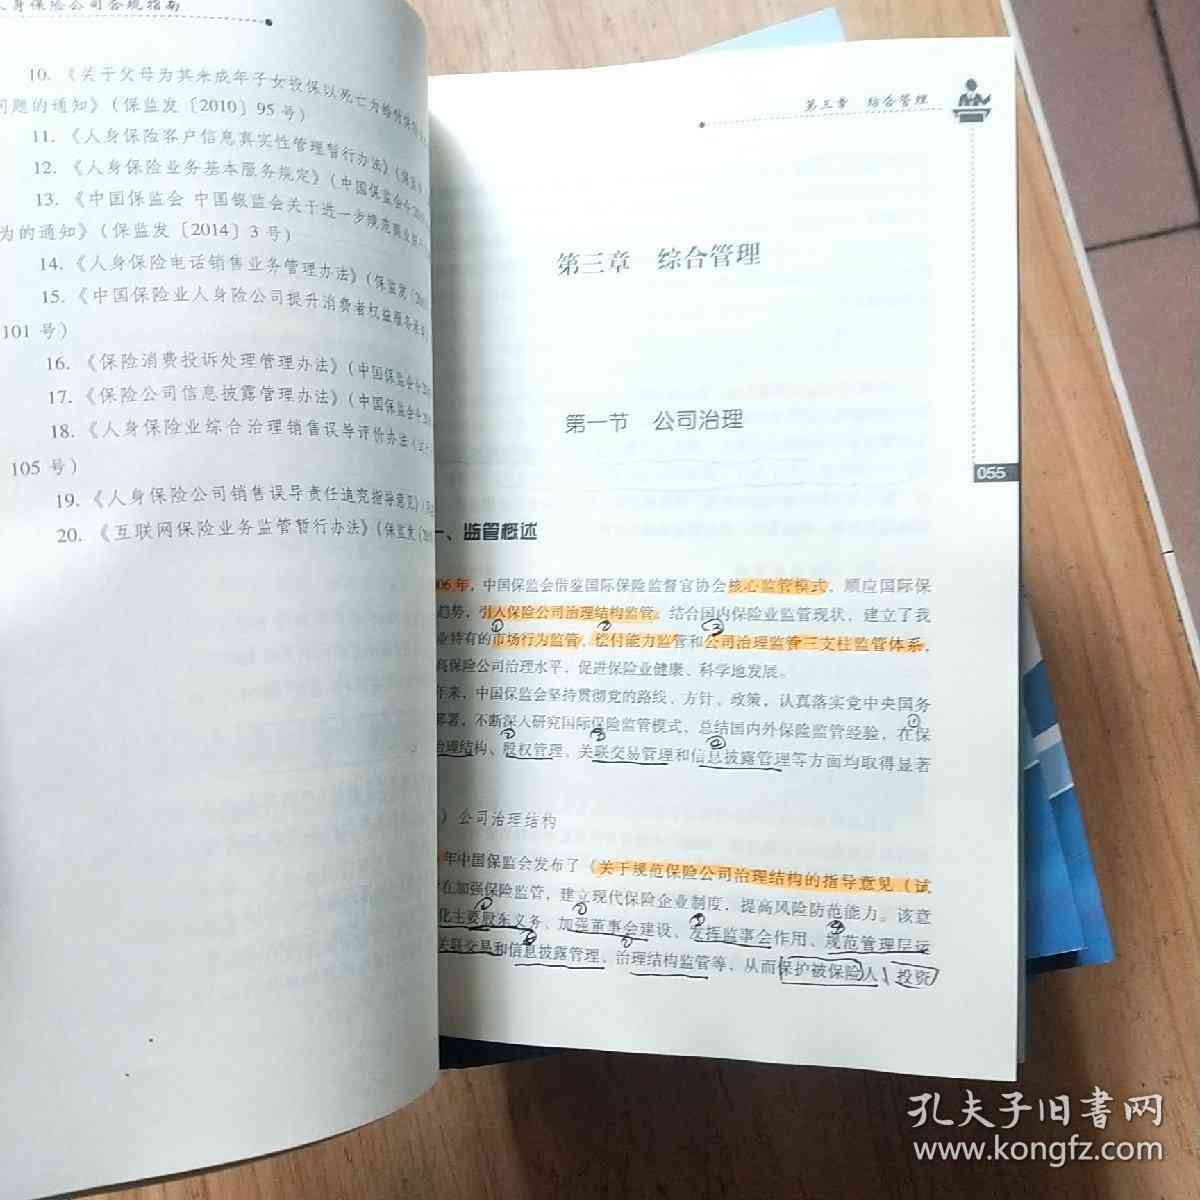 人身保险公司合规指南
10.《关于父母为其未成年子女投保以死亡为给付保险
问题的通知》（保监发〔2010〕95号）
11.《人身保险客户信息真实性管理暂行办法》（保监发
12.《人身保险业务基本服务规定》（中国保监会令2010
13.《中国保监会 中国银监会关于进一步规范商业银行
为的通知》（保监发〔2014〕3号）
14.《人身保险电话销售业务管理办法》（保监发〔20
15.《中国保险业人身险公司提升消费者权益服务
101号）
16.《保险消费投诉处理管理办法》（中国保监会令20
17.《保险公司信息披露管理办法》（中国保监会令20
18.《人身保险业综合治理销售误导评价办法（试
105号）
19.《人身保险公司销售误导责任追究指导意见》（
20.《互联网保险业务监管暂行办法》（保监发〔20
第三章 综合管理
第三章 综合管理
第一节 公司治理
055
一、监管概述
06年，中国保监会借鉴国际保险监督官协会核心监管模式，顺应国际保
趋势，引入保险公司治理结构监管。结合国内保险业监管现状，建立了我
业特有的市场行为监管、偿付能力监管和公司治理监管三支柱监管体系，
高保险公司治理水平，促进保险业健康、科学地发展。
年来，中国保监会坚持贯彻党的路线、方针、政策，认真落实党中央国务
部署，不断深入研究国际保险监管模式，总结国内外保险监管经验，在保
治理结构、股权管理、关联交易管理和信息披露管理等方面均取得显著
）公司治理结构
年中国保监会发布了《关于规范保险公司治理结构的指导意见（试
在加强保险监管，建立现代保险企业制度，提高风险防范能力。该意
化主要股东义务、加强董事会建设、发挥监事会作用、规范管理层运
关联交易和信息披露管理、治理结构监管等，从而保护被保险人、投资
孔夫子旧书网
www.kongfz.com